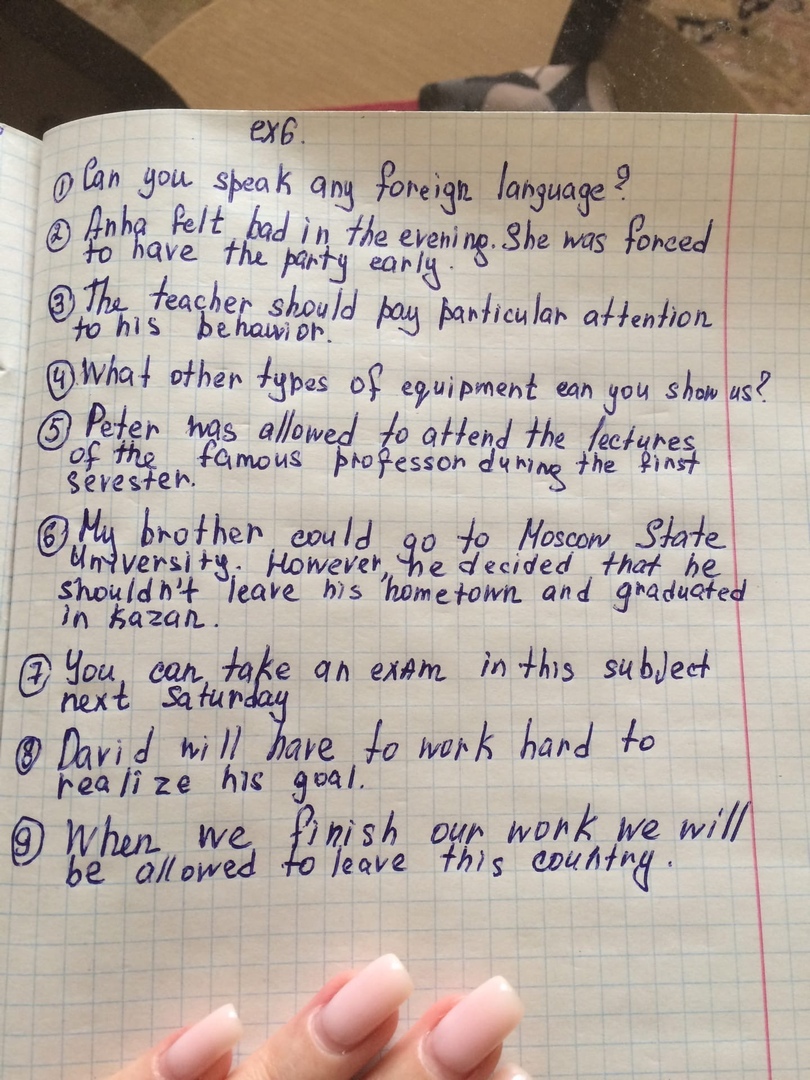 ex6.
① Can you speak any foreign language?
② Anna felt bad in the evening. She was forced
to have the party early.
③ The teacher should pay particular attention
to his behavior.
④ What other types of equipment can you show us?
⑤ Peter was allowed to attend the lectures
of the famous professor during the first
sevester.
⑥ My brother could go to Moscow State
University. However, he decided that he
shouldn't leave his hometown and graduated
in Kazan.
⑦ You can take an exAm in this subject
next Saturday
⑧ David will have to work hard to
realize his goal.
⑨ When we finish our work we will
be allowed to leave this country.